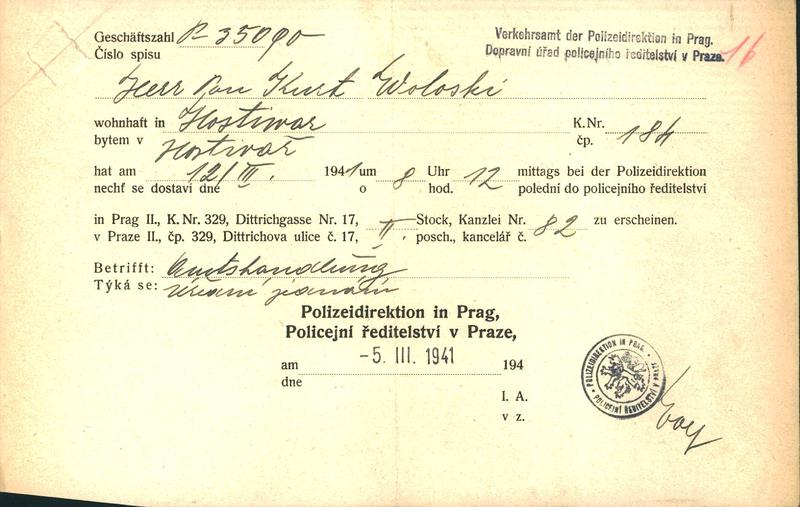 Geschäftszahl P-35090
Číslo spisu
Verkehrsamt der Polizeidirektion in Prag.
Dopravní úřad policejního ředitelství v Praze.
16
Herr Pan Kurt Woloski
wohnhaft in Hostiwar K.Nr.
bytem v Hostivař čp. 184
hat am 12/III. 1941 um 8 Uhr 12 mittags bei der Polizeidirektion
nechť se dostaví dne o hod. polední do policejního ředitelství
in Prag II., K. Nr. 329, Dittrichgasse Nr. 17, II. Stock, Kanzlei Nr. 82 zu erscheinen.
v Praze II., čp. 329, Dittrichova ulice č. 17, posch., kancelář č.
Betrifft: Amtshandlung
Týká se: úřední jednání
Polizeidirektion in Prag,
Policejní ředitelství v Praze,
am -5. III. 1941 194
dne
I. A.
v z.
POLIZEIDIREKTION IN PRAG
POLICEJNÍ ŘEDITELSTVÍ V PRAZE